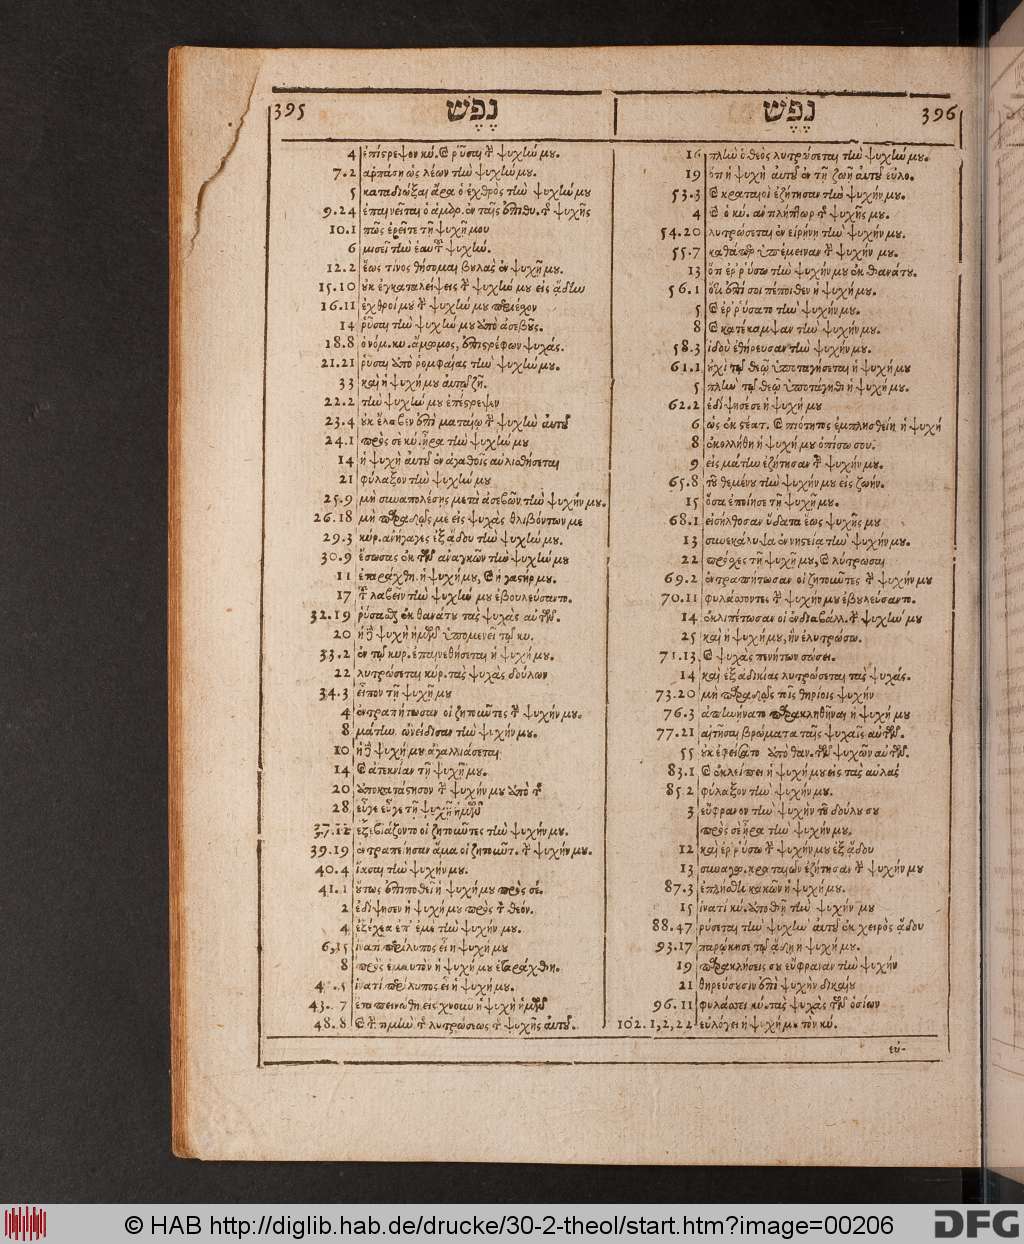 395 נֶפֶשׁ
4 ἐπίστρεψον κύ. & ῥῦσαι τ ψυχίω μου.
7.2 ἁρπάσῃ ὡς λέων τίω ψυχίω μου.
5 καταδιώξαι ἄρα ὁ ἐχθρὸς τίω ψυχίω μου
9.24 ἐπαινεῖται ὁ ἁμαρ. ἐν ταῖς ἐπιθυ. τ ψυχῆς
10.1 πῶς ἐρεῖτε τῇ ψυχῇ μου
6 μισεῖ τίω ἑαυτ ψυχίω.
12.2 ἕως τίνος θήσομαι βουλὰς ἐν ψυχῇ μου.
15.10 οὐκ ἐγκαταλείψεις τ ψυχίω μου εἰς ᾅδίω
16.11 ἐχθροί μου τ ψυχίω μου περιέχον
14 ῥῦσαι τίω ψυχίω μου ὑπὸ ἀσεβοῦς.
18.8 ὁ νόμ. κυ. ἄμωμος, ἐπιστρέφων ψυχάς.
21.21 ῥῦσαι ὑπὸ ῥομφαίας τίω ψυχίω μου.
33 καὶ ἡ ψυχή μου αὐτῷ ζῇ.
22.2 τίω ψυχίω μου ἐπέστρεψεν
23.4 οὐκ ἔλαβεν ἐπὶ ματαίῳ τ ψυχίω αὐτοῦ
24.1 πρὸς σὲ κύ. ἦρα τίω ψυχίω μου
14 ἡ ψυχὴ αὐτοῦ ἐν ἀγαθοῖς αὐλισθήσεται
21 φύλαξον τίω ψυχίω μου
25.9 μὴ συναπολέσῃς μετὰ ἀσεβῶν τίω ψυχήν μου.
26.18 μὴ παραδῷς με εἰς ψυχὰς θλιβόντων με
29.3 κύρ. ἀνήγαγες ἐξ ᾅδου τίω ψυχίω μου.
30.9 ἔσωσας ἐκ τῶν ἀναγκῶν τίω ψυχίω μου
11 ἐταράχθη. ἡ ψυχή μου, & ἡ γαστήρ μου.
17 τ λαβεῖν τίω ψυχίω μου ἐβουλεύσαντο.
32.19 ῥύσασθαι ἐκ θανάτου τὰς ψυχὰς αὐτῶν.
20 ἡ δὲ ψυχὴ ἡμῶν ὑπομενεῖ τῷ κυ.
33.2 ἐν τῷ κυρ. ἐπαινεθήσεται ἡ ψυχή μου.
22 λυτρώσεται κύρ. τὰς ψυχὰς δούλων
34.3 εἶπον τῇ ψυχῇ μου
4 ἐντραπήτωσαν οἱ ζητοῦντες τ ψυχήν μου.
8 μάτίω. ὠνείδισαν τίω ψυχήν μου.
10 ἡ δὲ ψυχή μου ἀγαλλιάσεται
14 & ἀτεκνίαν τῇ ψυχῇ μου.
20 ὑποκατάστησον τ ψυχήν μου ὑπὸ τ
28 εὖγε εὖγε τῇ ψυχῇ ἡμῶν
37.12 ἐξεβιάζοντο οἱ ζητοῦντες τίω ψυχήν μου.
39.19 ἐντραπείησαν ἅμα οἱ ζητοῦντ. τ ψυχήν μου.
40.4 ἴασαι τίω ψυχήν μου.
41.1 οὕτως ἐπιποθεῖ ἡ ψυχή μου πρὸς σέ.
2 ἐδίψησεν ἡ ψυχή μου πρὸς τ θεόν.
4 ἐξέχεα ἐπ' ἐμὲ τίω ψυχήν μου.
6,15 ἱνατί περίλυπος εἶ ἡ ψυχή μου
8 πρὸς ἐμαυτὸν ἡ ψυχή μου ἐταράχθη.
4 .5 ἱνατί περίλυπος εἶ ἡ ψυχή μου.
43. 7 ἐταπεινώθη εἰς χνοῦν ἡ ψυχὴ ἡμῶν
48.8 & τ τιμίω τ λυτρώσεως τ ψυχῆς αὐτοῦ.
נֶפֶשׁ 396
16 πλίω ὁ θεὸς λυτρώσεται τίω ψυχίω μου.
19 ὅτι ἡ ψυχὴ αὐτοῦ ἐν τῇ ζωῇ αὐτοῦ εὐλο.
53.3 & κραταιοὶ ἐζήτησαν τίω ψυχήν μου.
4 & ὁ κύ. ἀντιλήπτωρ τ ψυχῆς μου.
54.20 λυτρώσεται ἐν εἰρήνῃ τίω ψυχήν μου.
55.7 καθάπερ ὑπέμειναν τ ψυχήν μου.
13 ὅτι ἐρρύσω τίω ψυχήν μου ἐκ θανάτου.
56.1 ὅτι ἐπὶ σοι πέποιθεν ἡ ψυχή μου.
5 & ἐρρύσατο τίω ψυχήν μου.
8 & κατέκαμψαν τίω ψυχήν μου.
58.3 ἰδοὺ ἐθήρευσαν τίω ψυχήν μου.
61.1 οὐχὶ τῷ θεῷ ὑποταγήσεται ἡ ψυχή μου
5 πλίω τῷ θεῷ ὑποτάγηθι ἡ ψυχή μου.
62.2 ἐδίψησέ σε ἡ ψυχή μου
6 ὡς ἐκ στέατ. & πιότητος ἐμπλησθείη ἡ ψυχή
8 ἐκολλήθη ἡ ψυχή μου ὀπίσω σου.
9 εἰς μάτίω ἐζήτησαν τ ψυχήν μου.
65.8 τοῦ θεμένου τίω ψυχήν μου εἰς ζωήν.
15 ὅσα ἐποίησε τῇ ψυχῇ μου.
68.1 εἰσήλθοσαν ὕδατα ἕως ψυχῆς μου
13 συνεκάλυψα ἐν νηστείᾳ τίω ψυχήν μου.
22 πρόσχες τῇ ψυχῇ μου, & λύτρωσαι
69.2 ἐντραπήτωσαν οἱ ζητοῦντες τ ψυχήν μου
70.11 φυλάσσοντες τ ψυχήν μου ἐβουλεύσαντο.
14 ἐκλιπέτωσαν οἱ ἐνδιαβάλλ. τ ψυχίω μου
25 καὶ ἡ ψυχή μου, ἣν ἐλυτρώσω.
71.13 & ψυχὰς πενήτων σώσει.
14 καὶ ἐξ ἀδικίας λυτρώσεται τὰς ψυχάς.
73.20 μὴ παραδῷς τοῖς θηρίοις ψυχήν
76.3 ἀπίωήνατο παρακληθῆναι ἡ ψυχή μου
77.21 αἰτῆσαι βρώματα ταῖς ψυχαῖς αὐτῶν.
55 οὐκ ἐφείσατο ὑπὸ θαν. τῶν ψυχῶν αὐτῶν.
83.1 & ἐκλείπει ἡ ψυχή μου εἰς τὰς αὐλάς
85.2 φύλαξον τίω ψυχήν μου.
3 εὔφρανον τίω ψυχὴν τοῦ δούλου σου
πρὸς σὲ ἦρα τίω ψυχήν μου.
12 καὶ ἐρρύσω τ ψυχήν μου ἐξ ᾅδου
13 συναγω. κραταιῶν ἐζήτησαν τ ψυχήν μου
87.3 ἐπλήσθη κακῶν ἡ ψυχή μου.
15 ἱνατί κύ. ὑπωθῇ τίω ψυχήν μου
88.47 ῥύσεται τίω ψυχίω αὐτοῦ ἐκ χειρὸς ᾅδου
93.17 παρῴκησε τῷ ᾅδῃ ἡ ψυχή μου.
19 παρακλήσεις σου εὔφραναν τίω ψυχήν
21 θηρεύσουσιν ἐπὶ ψυχὴν δικαίου
96.11 φυλάσσει κύ. τὰς ψυχὰς τῶν ὁσίων
102.1,2,22 εὐλόγει ἡ ψυχή μου τὸν κύ.
εὐ-
© HAB http://diglib.hab.de/drucke/30-2-theol/start.htm?image=00206
DFG